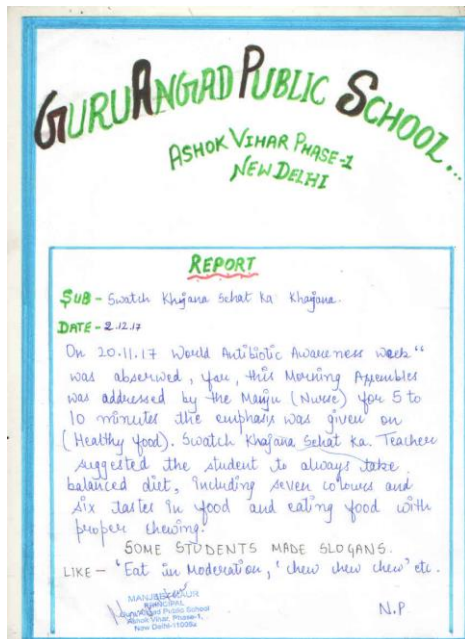 GURU ANGAD PUBLIC SCHOOL...
ASHOK VIHAR PHASE-1
NEW DELHI
REPORT
SUB - Swatch Khajana Sehat Ka Khajana.
DATE - 2.12.17
On 20.11.17 World Antibiotic Awareness week"
was absorwed, for, this Morning Assembles
was addressed by the Manju (Nurse) for 5 to
10 minutes the emphasis was given on
(Healthy food). Swatch Khajana Sehat Ka. Teacher
suggested the student to always take
balanced diet, including seven colours and
six tastes in food and eating food with
proper chewing.
SOME STUDENTS MADE SLOGANS.
LIKE - 'Eat in Moderation, 'chew chew chew' etc.
MANJEET KAUR
Principal
Guru Angad Public School
Ashok Vihar, Phase-1,
New Delhi-110052
N.P.